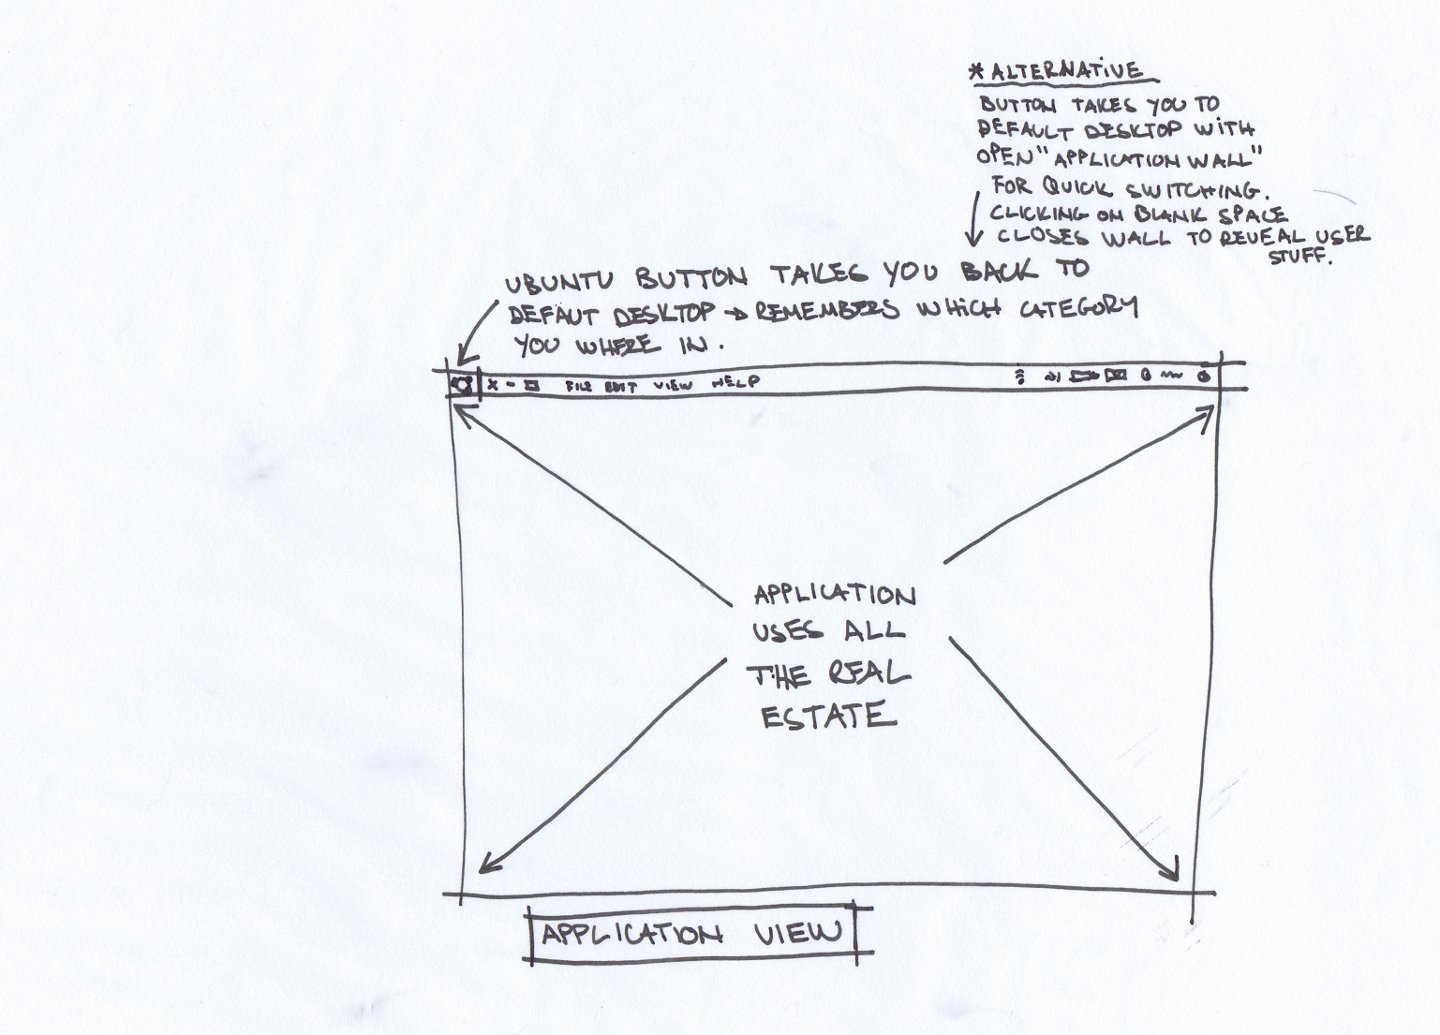 * ALTERNATIVE
BUTTON TAKES YOU TO
DEFAULT DESKTOP WITH
OPEN "APPLICATION WALL"
FOR QUICK SWITCHING.
CLICKING ON BLANK SPACE
CLOSES WALL TO REVEAL USER
STUFF.
UBUNTU BUTTON TAKES YOU BACK TO
DEFAUT DESKTOP → REMEMBERS WHICH CATEGORY
YOU WHERE IN.
FILE EDIT VIEW HELP
APPLICATION
USES ALL
THE REAL
ESTATE
APPLICATION VIEW